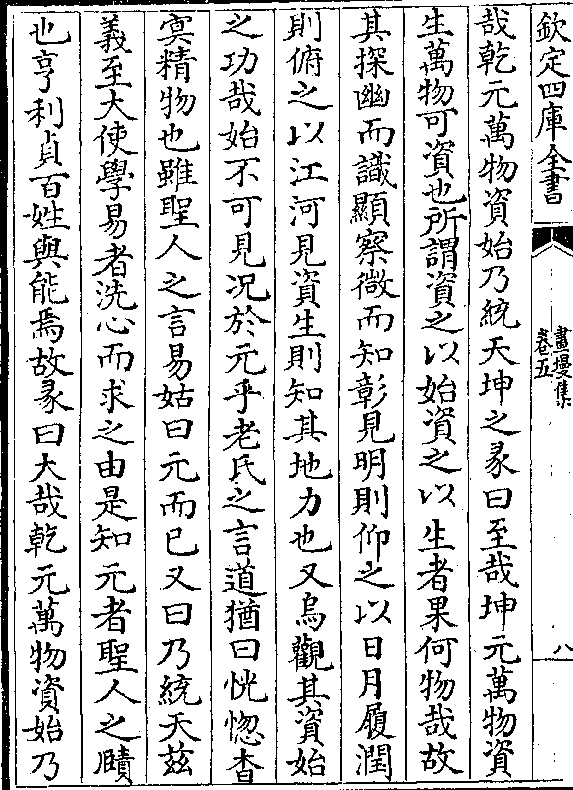 欽定四庫全書
畫墁集
卷五
八
哉乾元萬物資始乃統天坤之彖曰至哉坤元萬物資
生萬物可資也所謂資之以始資之以生者果何物哉故
其探幽而識顯察微而知彰見明則仰之以日月履潤
則俯之以江河見資生則知其地力也又烏觀其資始
之功哉始不可見况於元乎老氏之言道猶曰恍惚杳
㝠精物也雖聖人之言易姑曰元而已又曰乃統天茲
義至大使學易者洗心而求之由是知元者聖人之賾
也亨利貞百姓與能焉故彖曰大哉乾元萬物資始乃